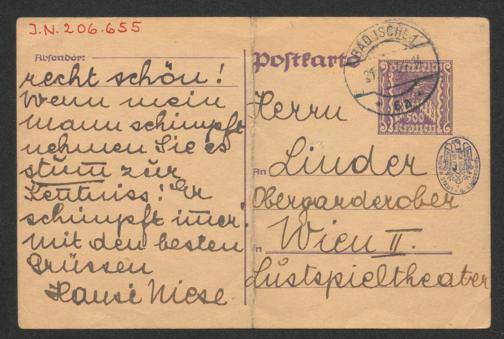 J.N. 206.655
Absender:
recht schön!
Wenn mein
Mann schimpft
nehmen Sie es
stumm zur
Kentniss! Er
schimpft imer!
Mit den besten
Grüssen
Hansi Niese
Postkarte
BAD ISCHL 1
500
Kronen
Herrn
An Linder
Obergarderober
in Wien II.
Lustspieltheater